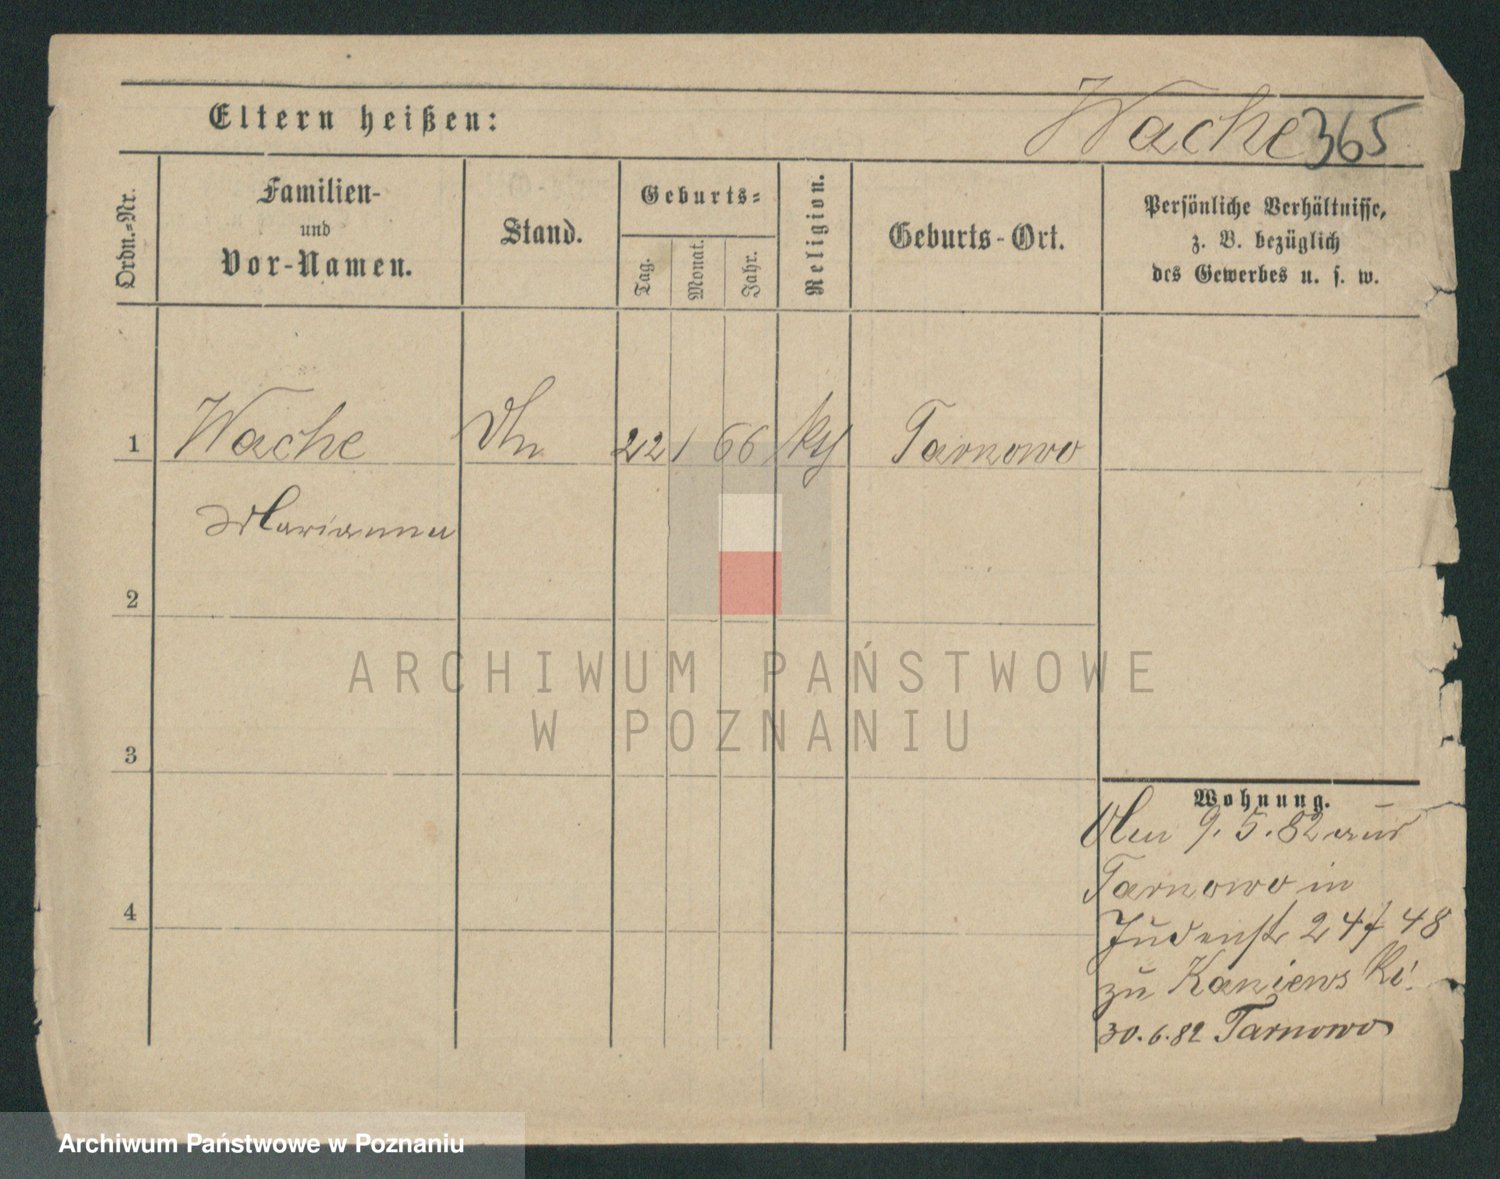 Eltern heißen:
Wache 365
Ordn.-Nr.
Familien-
und
Vor-Namen.
Stand.
Geburts-
Tag.
Monat.
Jahr.
Religion.
Geburts-Ort.
Persönliche Verhältnisse,
z. B. bezüglich
des Gewerbes u. s. w.
1 Wache 22 1 66 Tarnowo
Marianna
2
3
4
Wohnung.
9.5.82 aus
Tarnowo in
Judenstr 48
zu Kaniewski
30.6.82 Tarnowo
ARCHIWUM PAŃSTWOWE
W POZNANIU
Archiwum Państwowe w Poznaniu